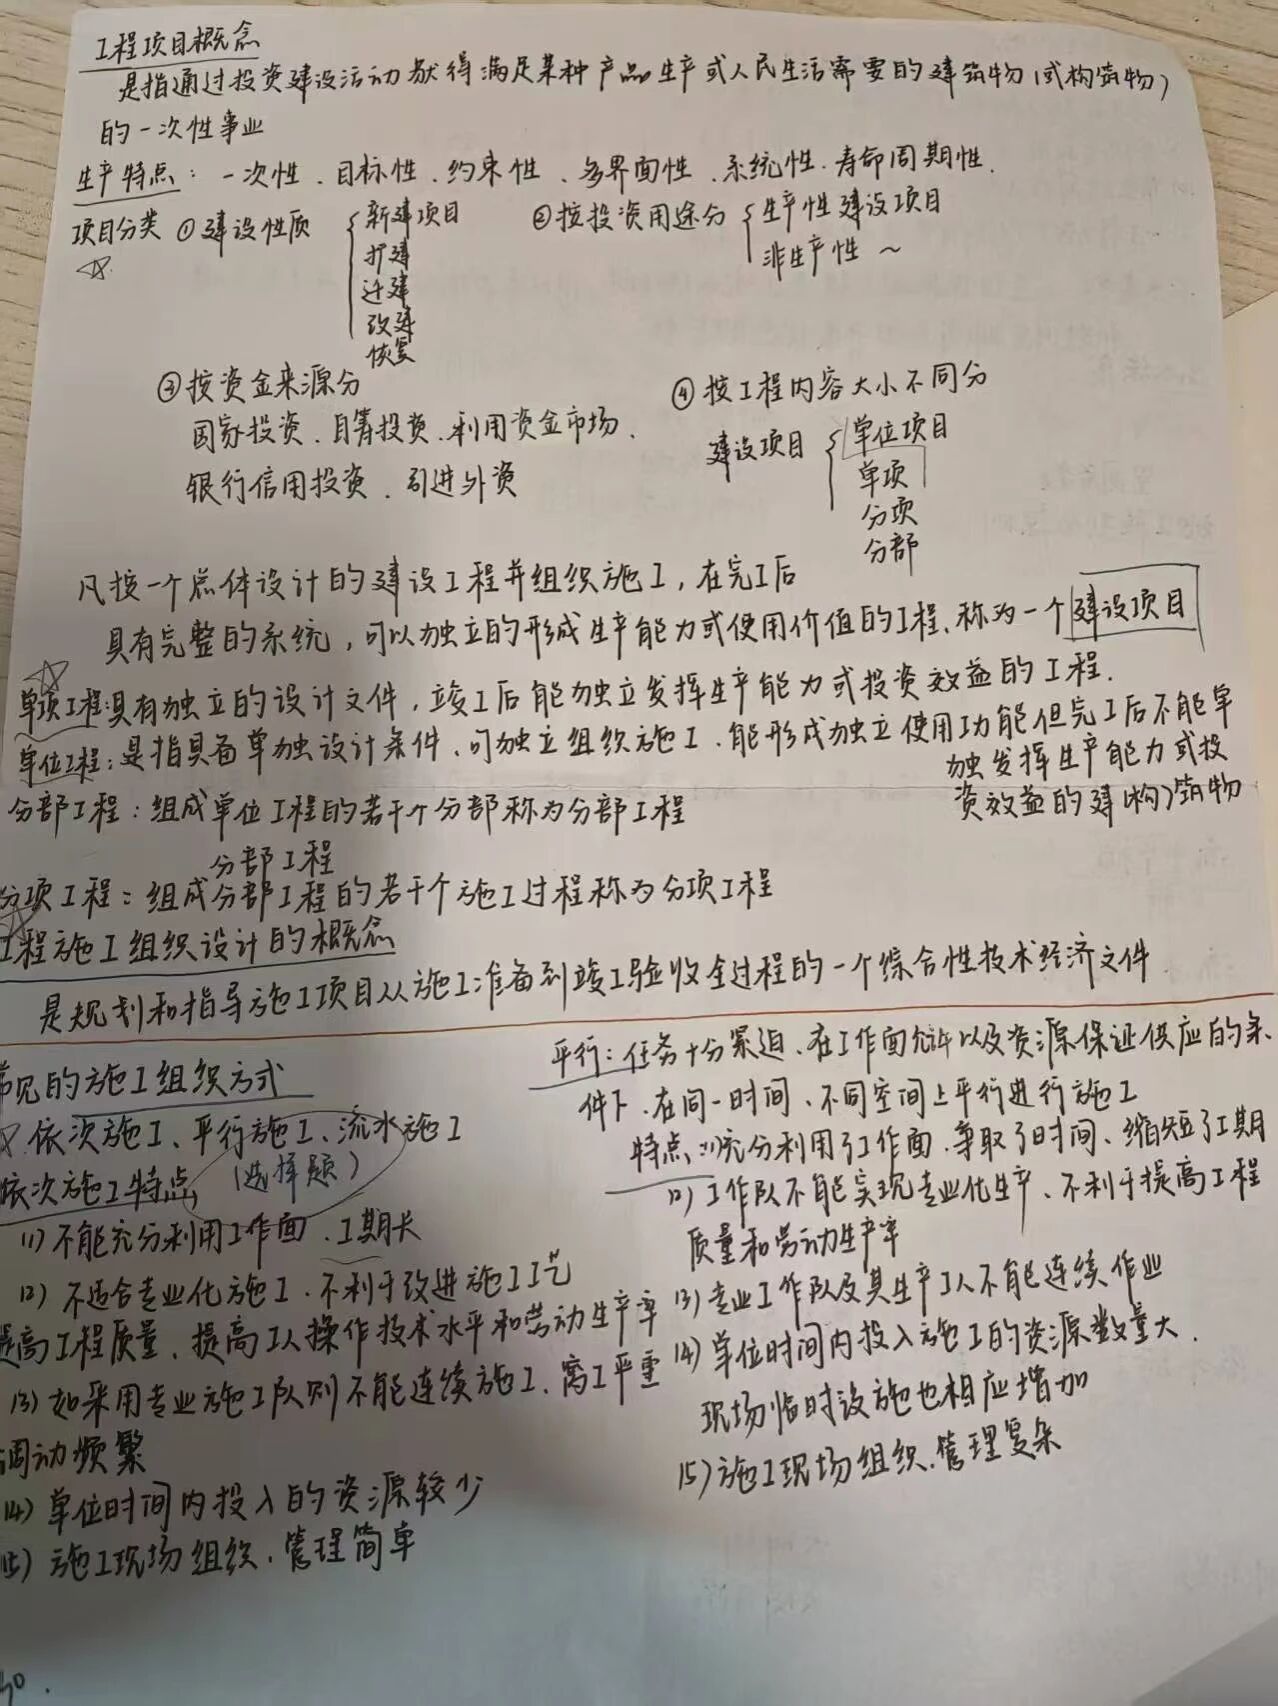 工程项目概念
是指通过投资建设活动获得满足某种产品生产或人民生活需要的建筑物(或构筑物)
的一次性事业
生产特点：一次性、目标性、约束性、多界面性、系统性、寿命周期性.
项目分类 ①建设性质 { 新建项目
扩建
迁建
改建
恢复
②按投资用途分 { 生产性建设项目
非生产性 ~
③按资金来源分
国家投资、自筹投资、利用资金市场、
银行信用投资、引进外资
④按工程内容大小不同分
建设项目 { 单位项目
单项
分项
分部
凡按一个总体设计的建设工程并组织施工，在完工后
具有完整的系统，可以独立的形成生产能力或使用价值的工程、称为一个建设项目
单项工程：具有独立的设计文件，竣工后能独立发挥生产能力或投资效益的工程.
单位工程：是指具备单独设计条件、可独立组织施工、能形成独立使用功能但完工后不能单
独发挥生产能力或投
资效益的建(构)筑物
分部工程：组成单位工程的若干个分部称为分部工程
分部工程
分项工程：组成分部工程的若干个施工过程称为分项工程
工程施工组织设计的概念
是规划和指导施工项目从施工准备到竣工验收全过程的一个综合性技术经济文件
常见的施工组织方式
依次施工、平行施工、流水施工
(选择题)
依次施工特点
(1)不能充分利用工作面、工期长
(2)不适合专业化施工、不利于改进施工工艺
提高工程质量、提高工人操作技术水平和劳动生产率
(3)如采用专业施工队则不能连续施工、窝工严重
调动频繁
(4)单位时间内投入的资源较少
(5)施工现场组织、管理简单
平行：任务十分紧迫、在工作面允许以及资源保证供应的条
件下、在同一时间、不同空间上平行进行施工
特点：(1)充分利用了工作面、争取了时间、缩短了工期
(2)工作队不能实现专业化生产、不利于提高工程
质量和劳动生产率
(3)专业工作队及其生产工人不能连续作业
(4)单位时间内投入施工的资源数量大、
现场临时设施也相应增加
(5)施工现场组织、管理复杂